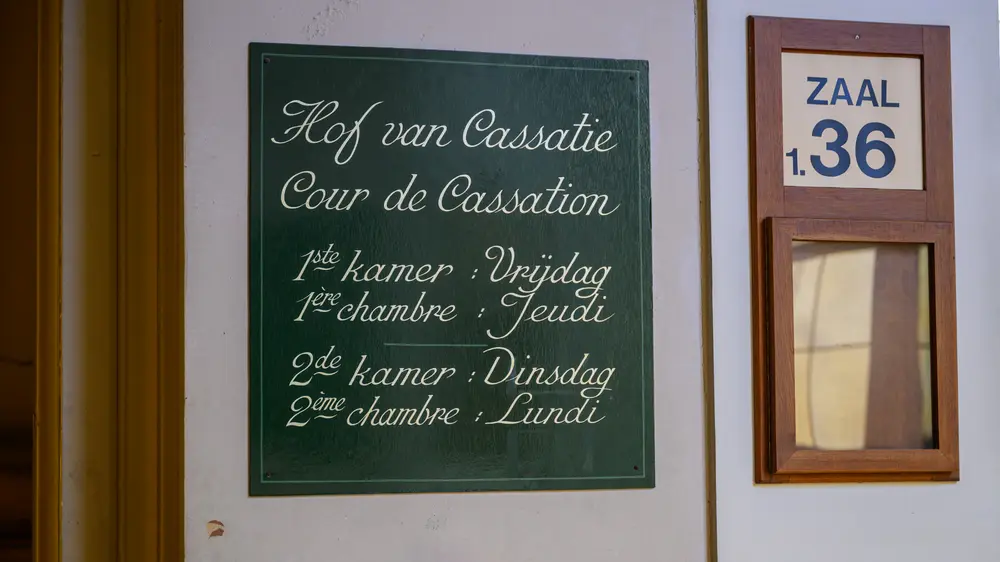 Hof van Cassatie
Cour de Cassation
1ste kamer : Vrijdag
1ère chambre : Jeudi
2de kamer : Dinsdag
2ème chambre : Lundi
ZAAL
1.36